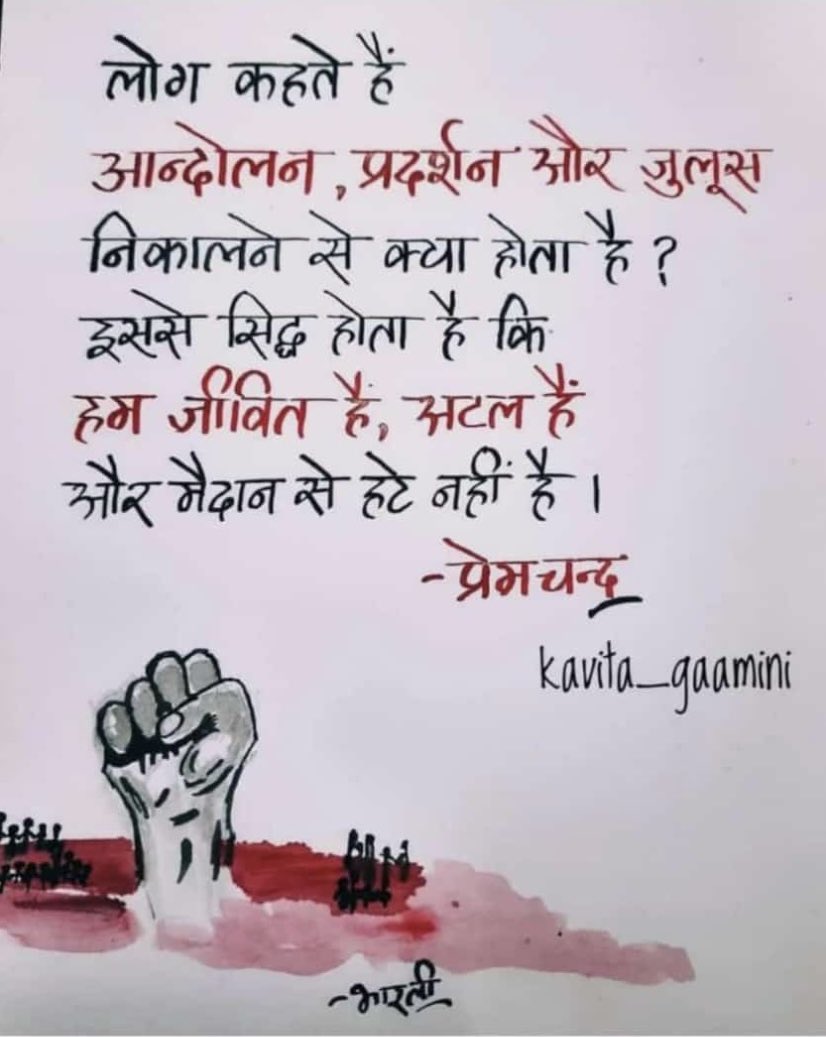 लोग कहते हैं
आन्दोलन, प्रदर्शन और जुलूस
निकालने से क्या होता है ?
इससे सिद्ध होता है कि
हम जीवित हैं, अटल हैं
और मैदान से हटे नहीं है ।
-प्रेमचन्द्र
kavita_gaamini
-भारती